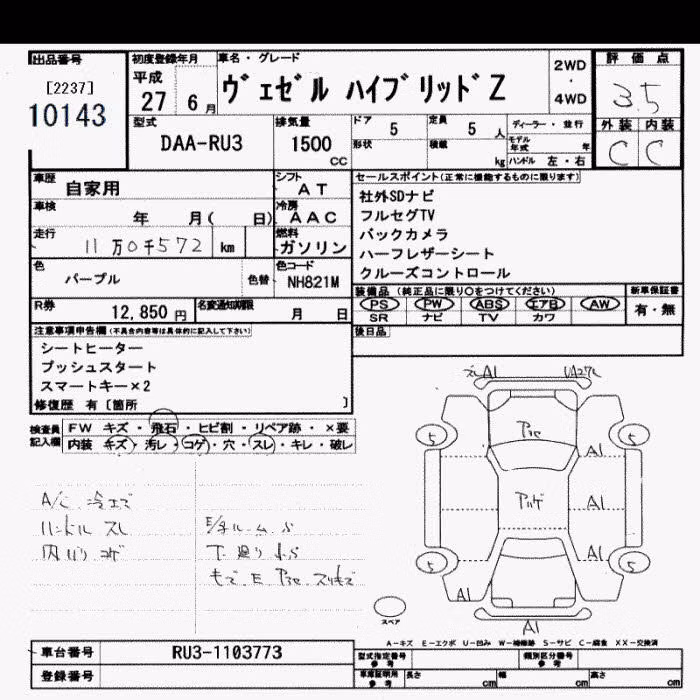 出品番号 初度登録年月 車名・グレード 2WD 評価点
[2237] 平成 ・
10143 27 6月 ヴェゼル ハイブリッドZ 4WD 3.5
型式 排気量 ドア 5 定員 5人 ディーラー・並行 外装 内装
DAA-RU3 1500 cc 形状 積載 kg モデル年式 年 ハンドル 左・右 C C
車歴 自家用 シフト AT セールスポイント(正常に機能するものに限ります)
車検 年 月( 日) 冷房 AAC 社外SDナビ
走行 11万0千572 km 燃料 ガソリン フルセグTV
バックカメラ
ハーフレザーシート
色 パープル 色替 色コード NH821M クルーズコントロール
R券 12,850円 名変通知期限 月 日 装備品(純正品に限り○をつけてください) 新車保証書
PS PW ABS エアB AW 有・無
SR ナビ TV カワ
注意事項申告欄(不具合内容等は具体的に記入して下さい) 後日品
シートヒーター
プッシュスタート
スマートキー×2
修復歴 有〔箇所 〕
検査員記入欄 FW キズ・飛石・ヒビ割・リペア跡・×要
内装 キズ・汚レ・コゲ・穴・スレ・キレ・破レ
A/C 冷エズ
ハンドル スレ
内ハリ コゲ
下廻り
A1
5 5
A1
A1
A1
5 5
A1
A1
スペア
A-キズ E-エクボ U-凹み W-補修跡 S-サビ C-腐食 XX-交換済
車台番号 RU3-1103773 型式指定番号 参考 類別区分番号 参考
登録番号 車庫証明用 参考 長さ cm 幅 cm 高さ cm